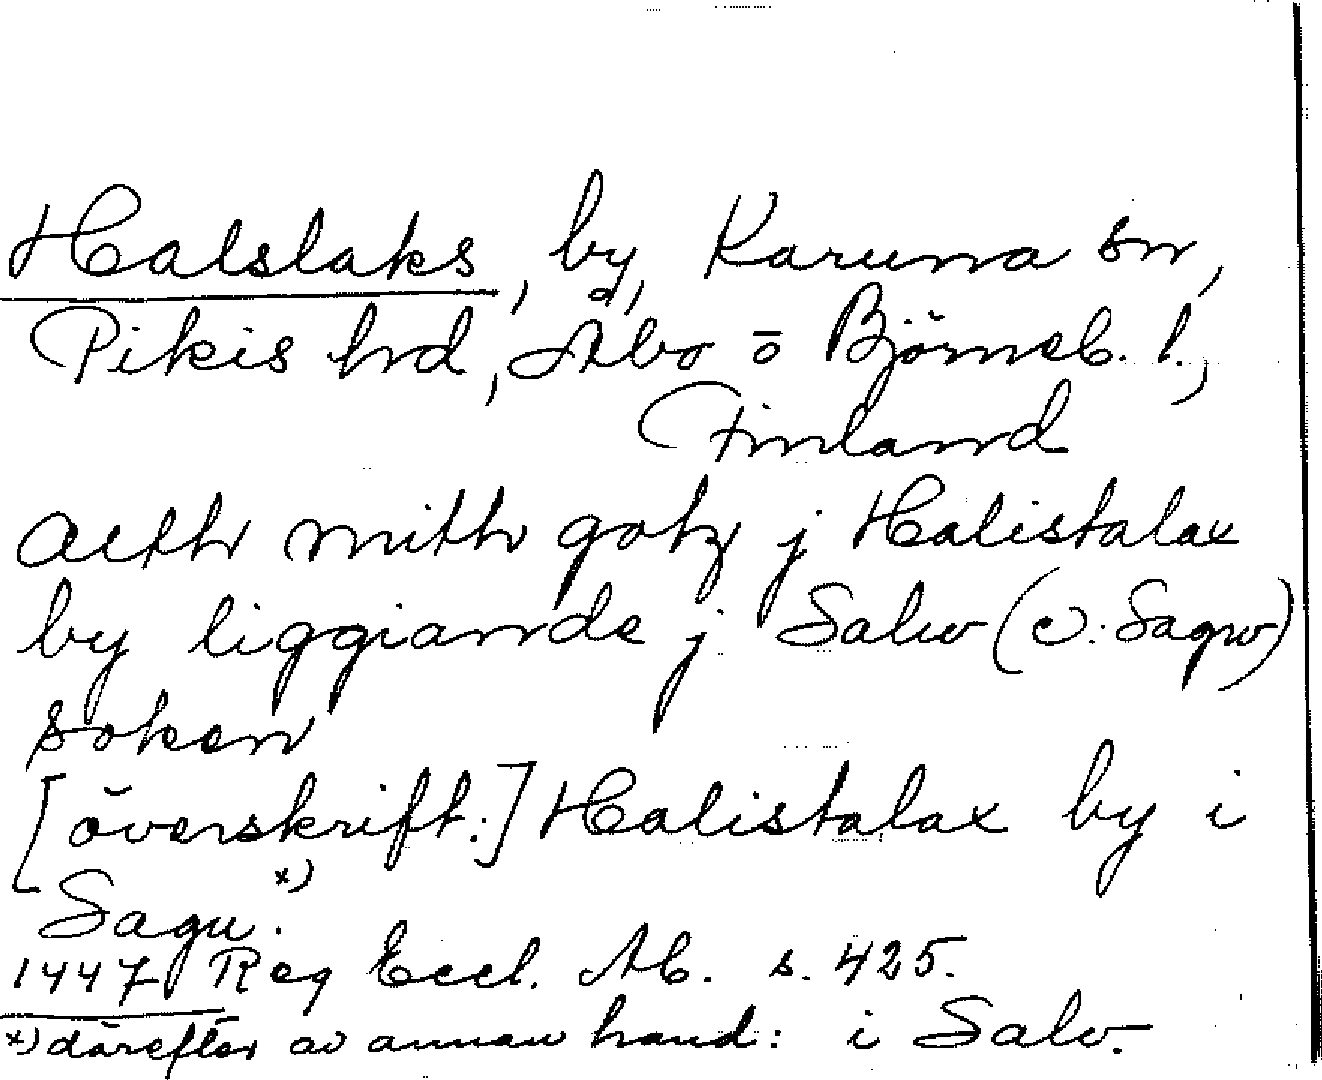 Halslaks, by, Karuna sn,
Pikis hrd, Åbo o Björneb. l.,
Finland
alth mith gotz j Halistalax
by liggiande j Salw (ɔ: Sagw)
soken
[överskrift:] Halistalax by i
Sagu. x)
1447 Reg Eccl. Ab. s. 425.
x) därefter av annan hand: i Salv.